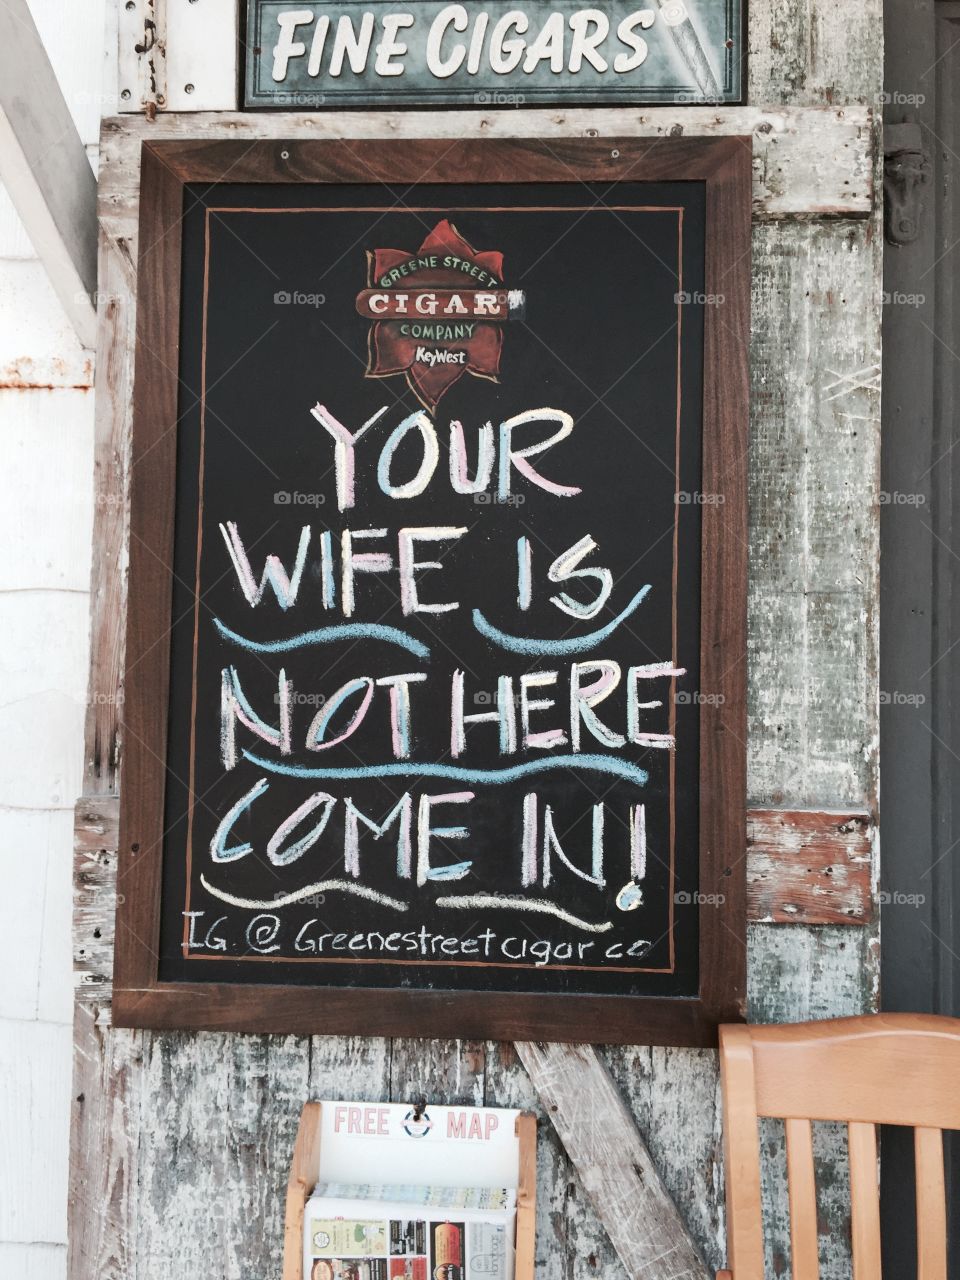 FINE CIGARS
GREENE STREET
CIGAR
COMPANY
KeyWest
YOUR
WIFE IS
NOT HERE
COME IN!
IG @ Greenestreetcigarco
FREE MAP
foap